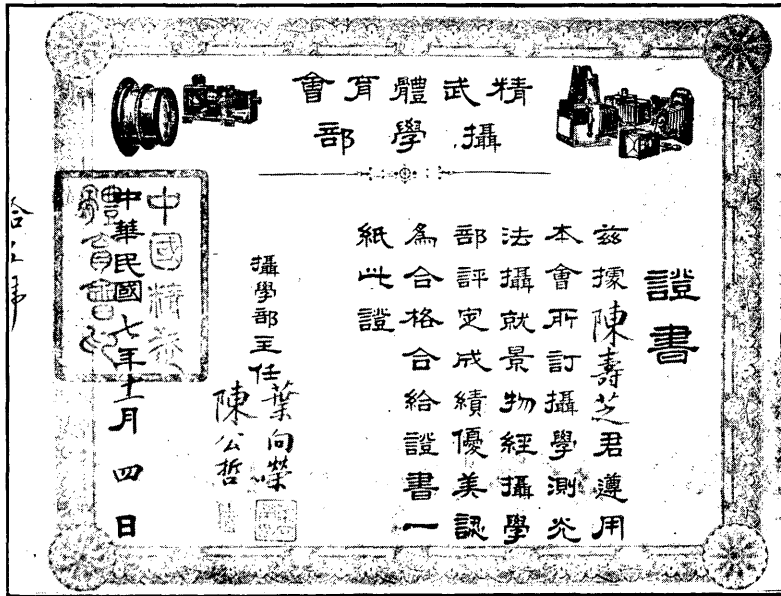 精武體育會
攝學部
證書
茲據陳壽芝君遵用
本會所訂攝學測光
法攝就景物經攝學
部評定成績優美認
為合格合給證書一
紙此證
攝學部主任葉向榮
陳公哲
中華民國七年十一月四日
中國精武
體育會印